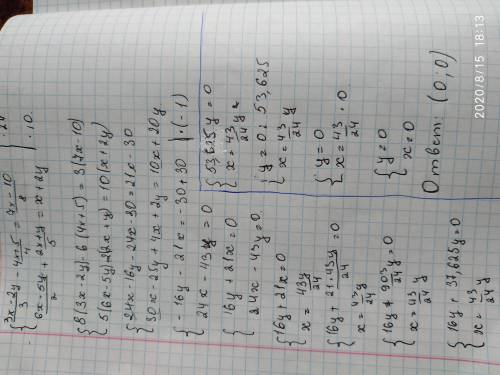 { 3x-2y/3 - 4x+5/4 = 7x-10/8 | ·24
6x-5y/2 + 2x+y/5 = x+2y | ·10
{ 8(3x-2y)-6(4x+5)=3(7x-10)
5(6x-5y)+2(2x+y)=10(x+2y)
{ 24x-16y-24x-30=21x-30
30x-25y+4x+2y=10x+20y
{ -16y-21x=-30+30 |·(-1)
24x-43y=0
{ 16y+21x=0
24x-43y=0
{ 16y+21x=0
x=43y/24
{ 16y+21·43y/24=0
x=43/24y
{ 16y+903/24y=0
x=43/24y
{ 16y+37,625y=0
x=43/24y
{ 53,625y=0
x=43/24y
{ y=0:53,625
x=43/24y
{ y=0
x=43/24·0
{ y=0
x=0
Ответ: (0;0)
2020/8/15 18:13